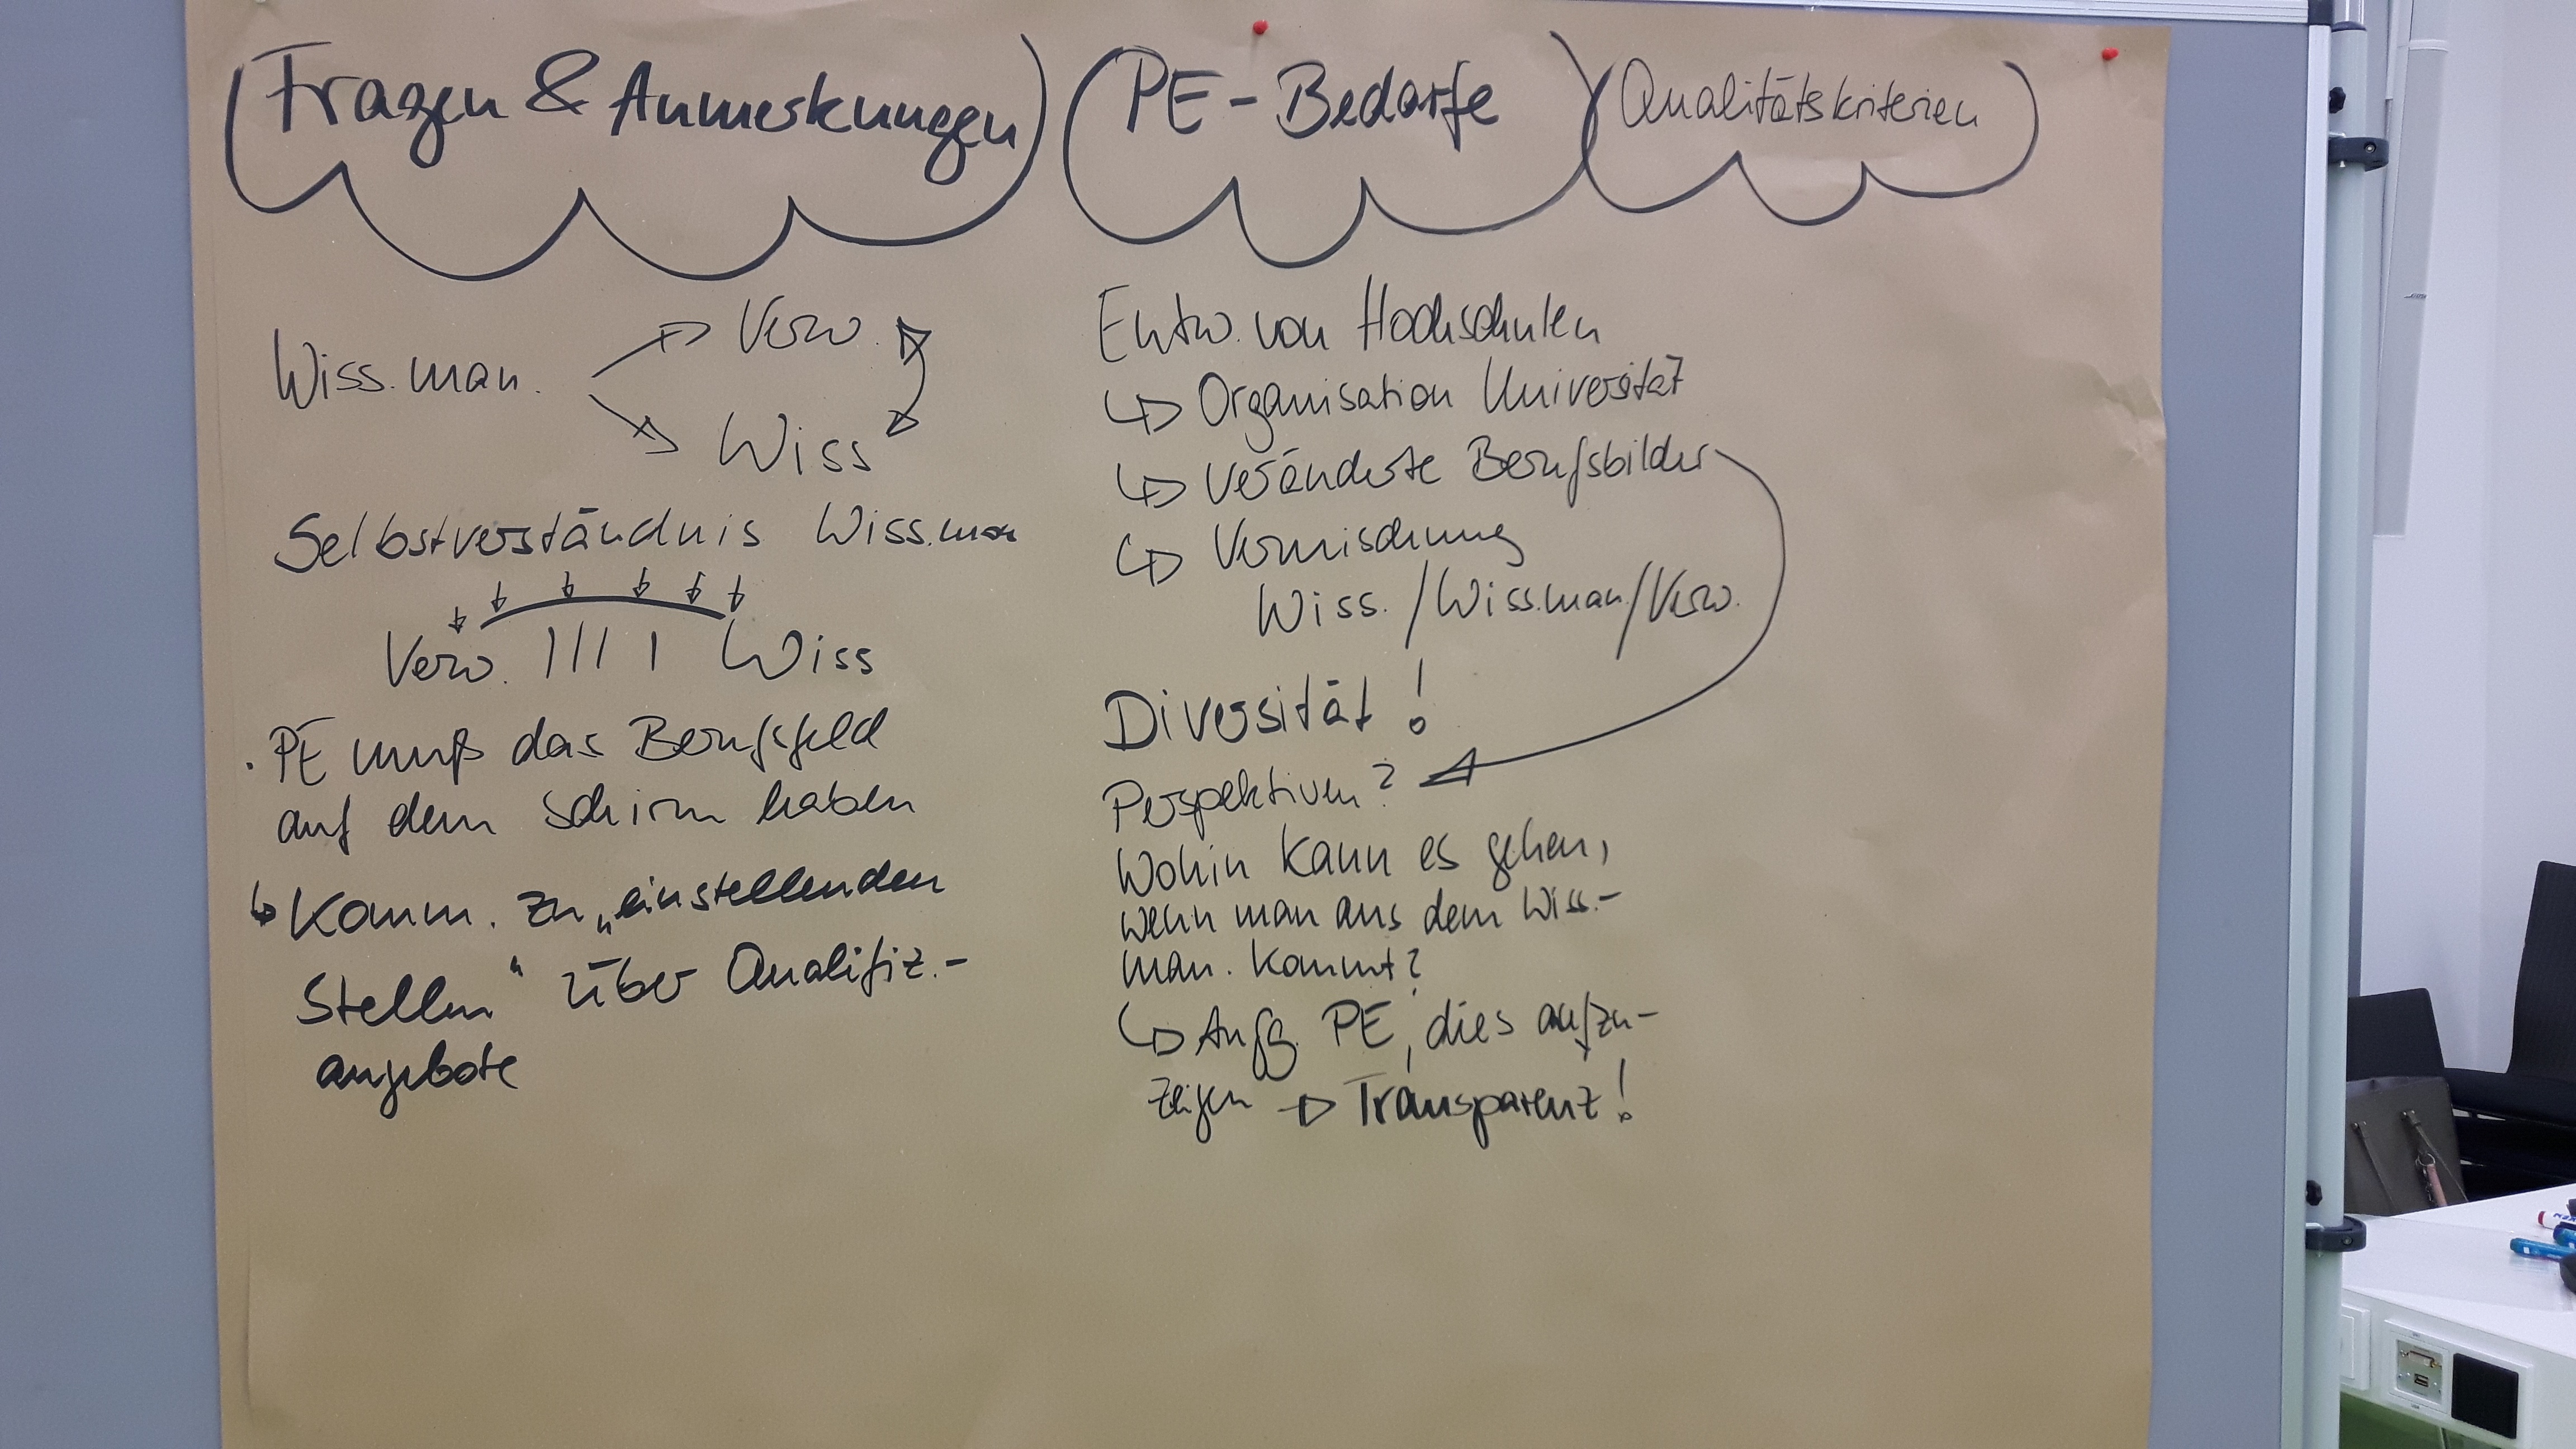 Fragen & Anmerkungen
Wiss.man.
Verw.
Wiss
Selbstverständnis Wiss.man
Verw. Wiss
· PE muß das Berufsfeld
auf dem Schirm haben
↳ Komm. zu „einstellenden
Stellen" über Qualifiz.-
angebote
PE-Bedarfe
Entw. von Hochschulen
↳ Organisation Universität
↳ veränderte Berufsbilder
↳ Vermischung
Wiss. / Wiss.man / Verw.
Diversität!
Perspektiven?
Wohin kann es gehen,
wenn man aus dem Wiss.-
man. kommt?
↳ Aufg. PE, dies aufzu-
zeigen → Transparenz!
Qualitätskriterien